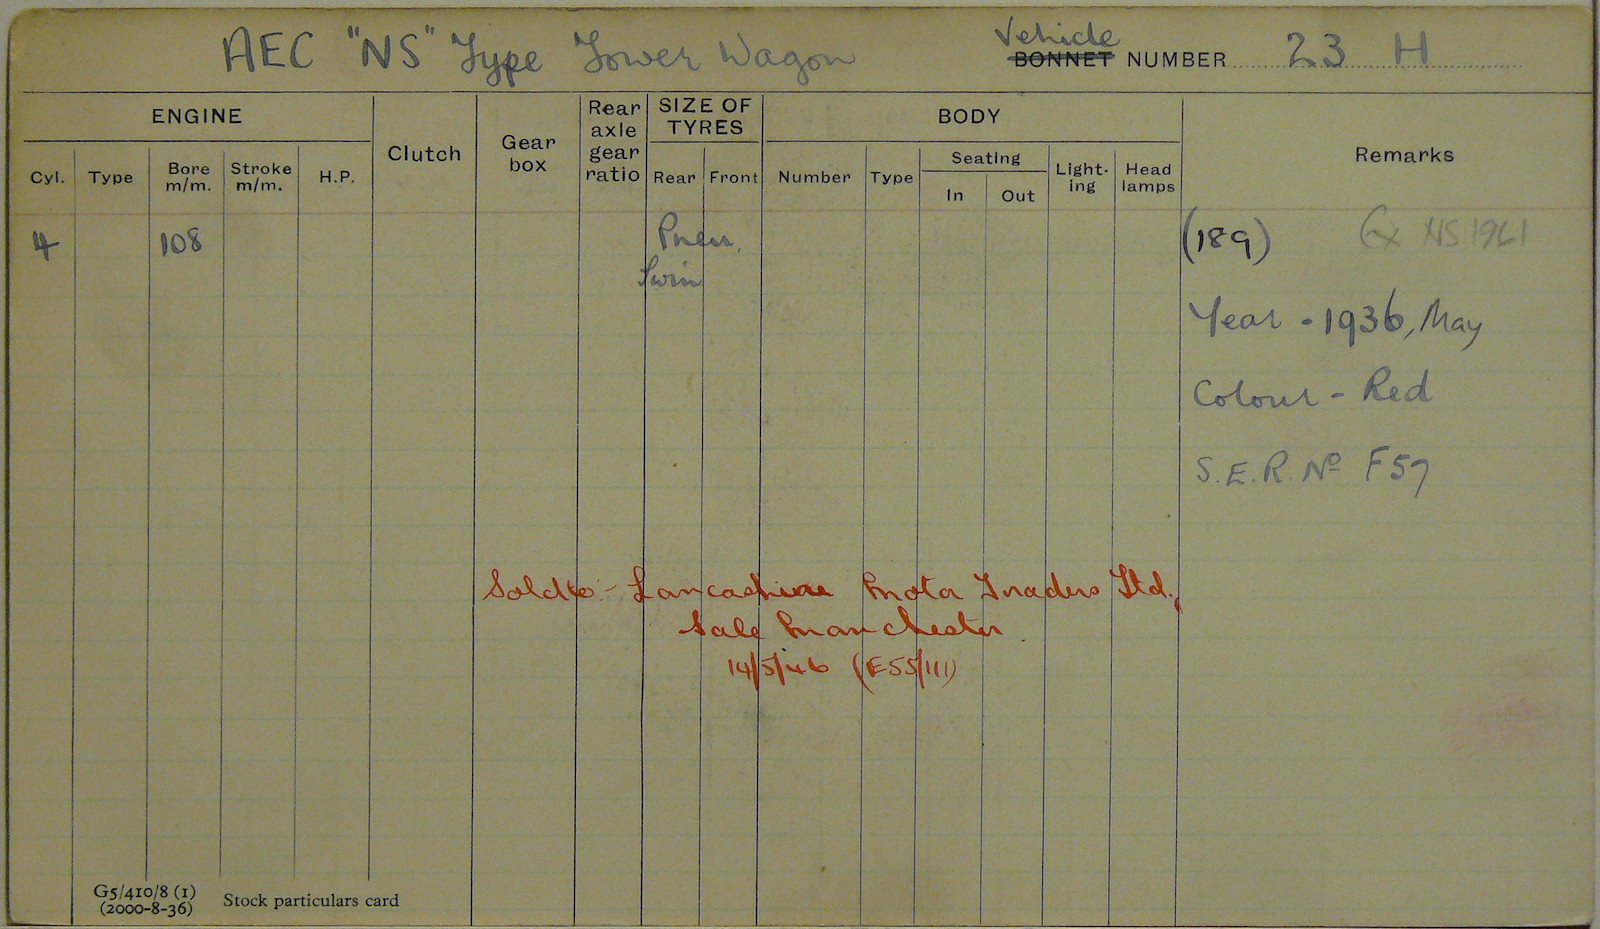 AEC "NS" Type Tower Wagon
Vehicle
BONNET NUMBER 23 H
ENGINE
Clutch
Gear box
Rear axle gear ratio
SIZE OF TYRES
BODY
Remarks
Cyl.
Type
Bore m/m.
Stroke m/m.
H.P.
Rear
Front
Number
Type
Seating
In
Out
Light-ing
Head lamps
4
108
Pneu.
Twin
(189) Ex NS 1961
Year - 1936, May
Colour - Red
S.E.R. Nº F57
Sold to - Lancashire Motor Traders Ltd.,
Sale Manchester
14/5/46 (E55/111)
G5/410/8 (1)
(2000-8-36)
Stock particulars card